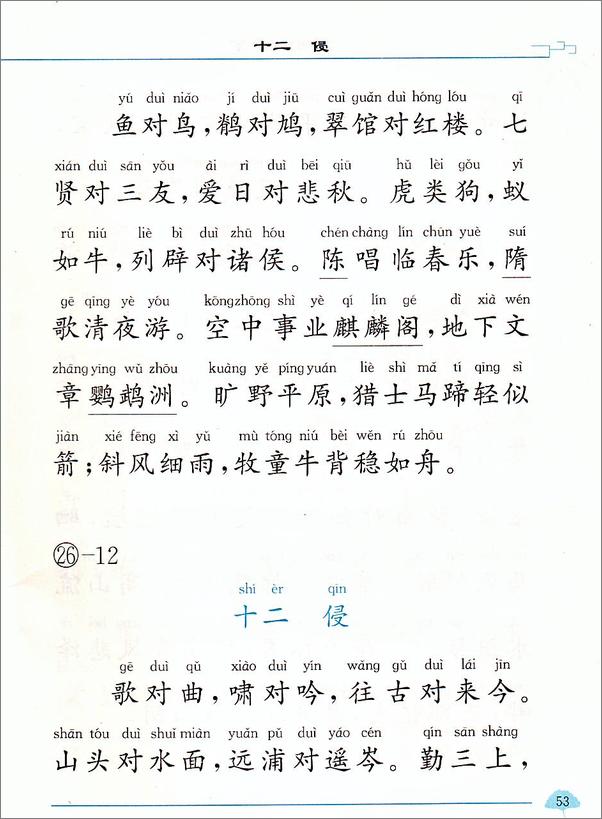 十二 侵
yú duì niǎo jí duì jiū cuì guǎn duì hóng lóu qī
鱼对鸟，鹡对鸠，翠馆对红楼。七
xián duì sān yǒu ài rì duì bēi qiū hǔ lèi gǒu yǐ
贤对三友，爱日对悲秋。虎类狗，蚁
rú niú liè bì duì zhū hóu chén chàng lín chūn yuè suí
如牛，列辟对诸侯。陈唱临春乐，隋
gē qīng yè yóu kōng zhōng shì yè qí lín gé dì xià wén
歌清夜游。空中事业麒麟阁，地下文
zhāng yīng wǔ zhōu kuàng yě píng yuán liè shì mǎ tí qīng sì
章鹦鹉洲。旷野平原，猎士马蹄轻似
jiàn xié fēng xì yǔ mù tóng niú bèi wěn rú zhōu
箭；斜风细雨，牧童牛背稳如舟。
㉖-12
shí èr qīn
十二 侵
gē duì qǔ xiào duì yín wǎng gǔ duì lái jīn
歌对曲，啸对吟，往古对来今。
shān tóu duì shuǐ miàn yuǎn pǔ duì yáo cén qín sān shàng
山头对水面，远浦对遥岑。勤三上，
53